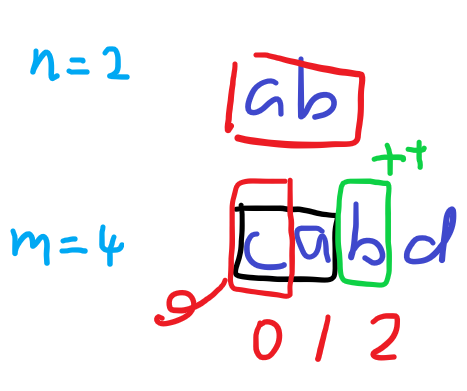 n=2 ab
++
m=4 cabd
0 1 2